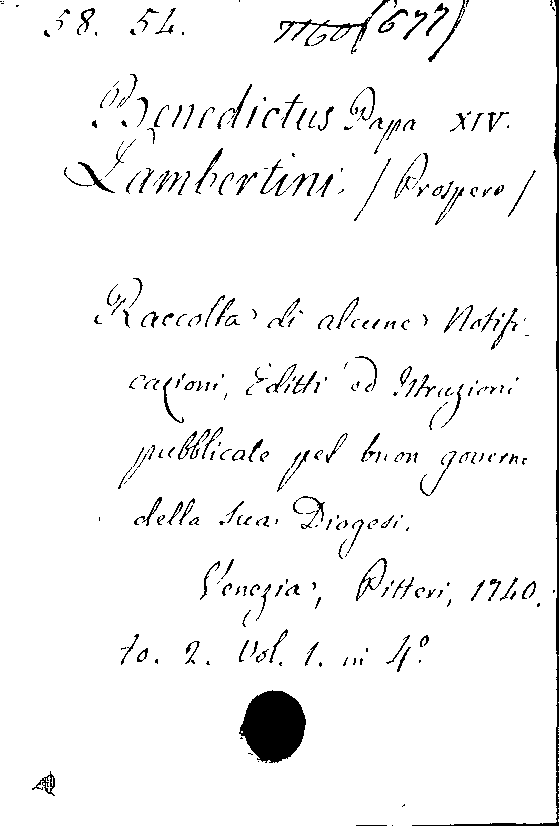 58. 54. 7160 (677)
Benedictus Papa XIV.
Lambertini. / Prospero /
Raccolta di alcune Notifi-
cazioni, Editti ed Istruzioni
pubblicate pel buon governo
della sua Diogesi.
Venezia, Pitteri, 1740.
to. 2. Vol. 1. in 4º